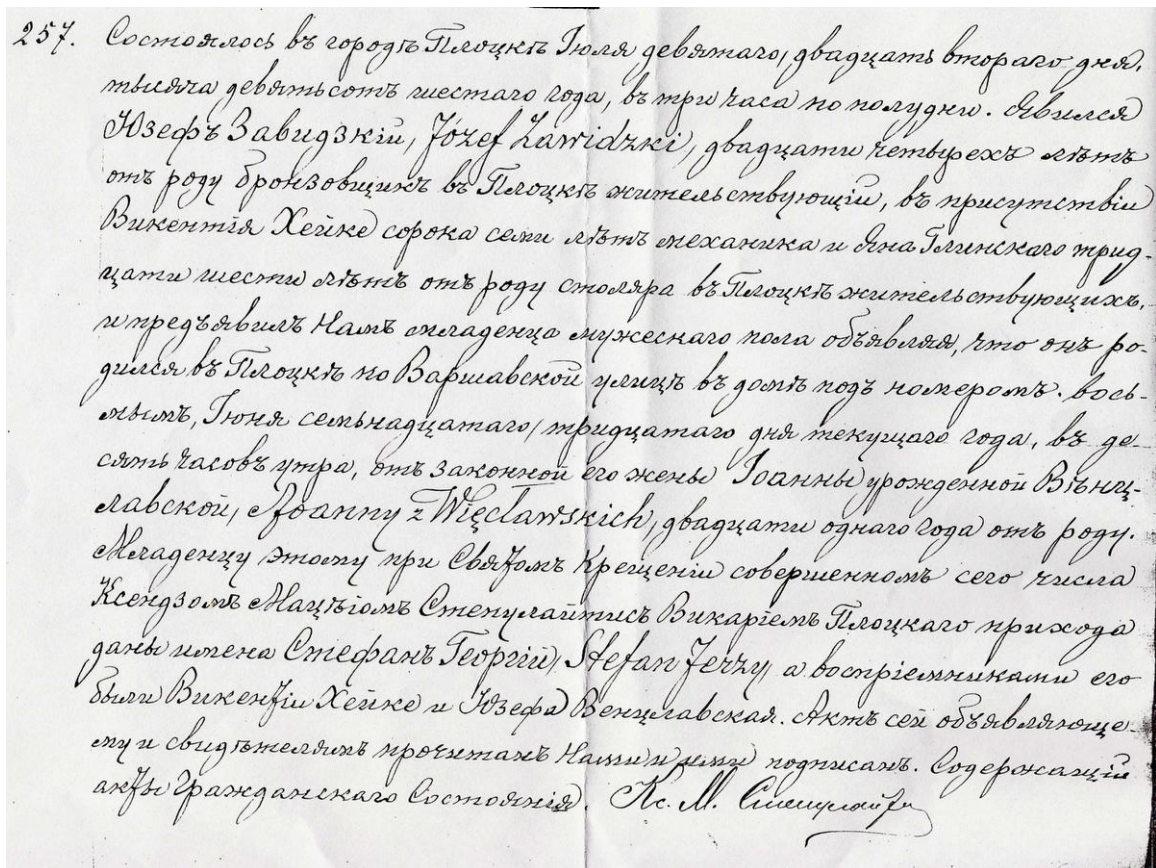 257. Состоялось въ городѣ Плоцкѣ Іюля девятаго / двадцать втораго дня,
тысяча девятьсотъ шестаго года, въ три часа по полудни. Явился
Юзефъ Завидзкій, Józef Zawidzki, двадцати четырехъ лѣтъ
отъ роду бронзовщикъ въ Плоцкѣ жительствующій, въ присутствіи
Викентія Хейке сорока семи лѣтъ механика и Яна Глинскаго трид-
цати шести лѣтъ отъ роду столяра въ Плоцкѣ жительствующихъ,
и предъявилъ Намъ младенца мужескаго пола объявляя, что онъ ро-
дился въ Плоцкѣ по Варшавской улицѣ въ домѣ подъ номеромъ вось-
мымъ, Іюня семьнадцатаго / тридцатаго дня текущаго года, въ де-
сять часовъ утра, отъ законной его жены Іоанны урожденной Вѣнц-
лавской, Joanny z Więcławskich, двадцати однаго года отъ роду.
Младенцу этому при Святомъ Крещеніи совершенномъ сего числа
Ксендзомъ Мацѣіомъ Степулайтисъ Викаріемъ Плоцкаго прихода
даны имена Стефанъ Георгій, Stefan Jerzy, а воспріемниками его
были Викентій Хейке и Юзефа Венцлавская. Актъ сей объявляюще-
му и свидѣтелямъ прочитанъ Нами и ими подписанъ. Содержащій
акты Гражданскаго Состоянія. Кс. М. Степулайтис